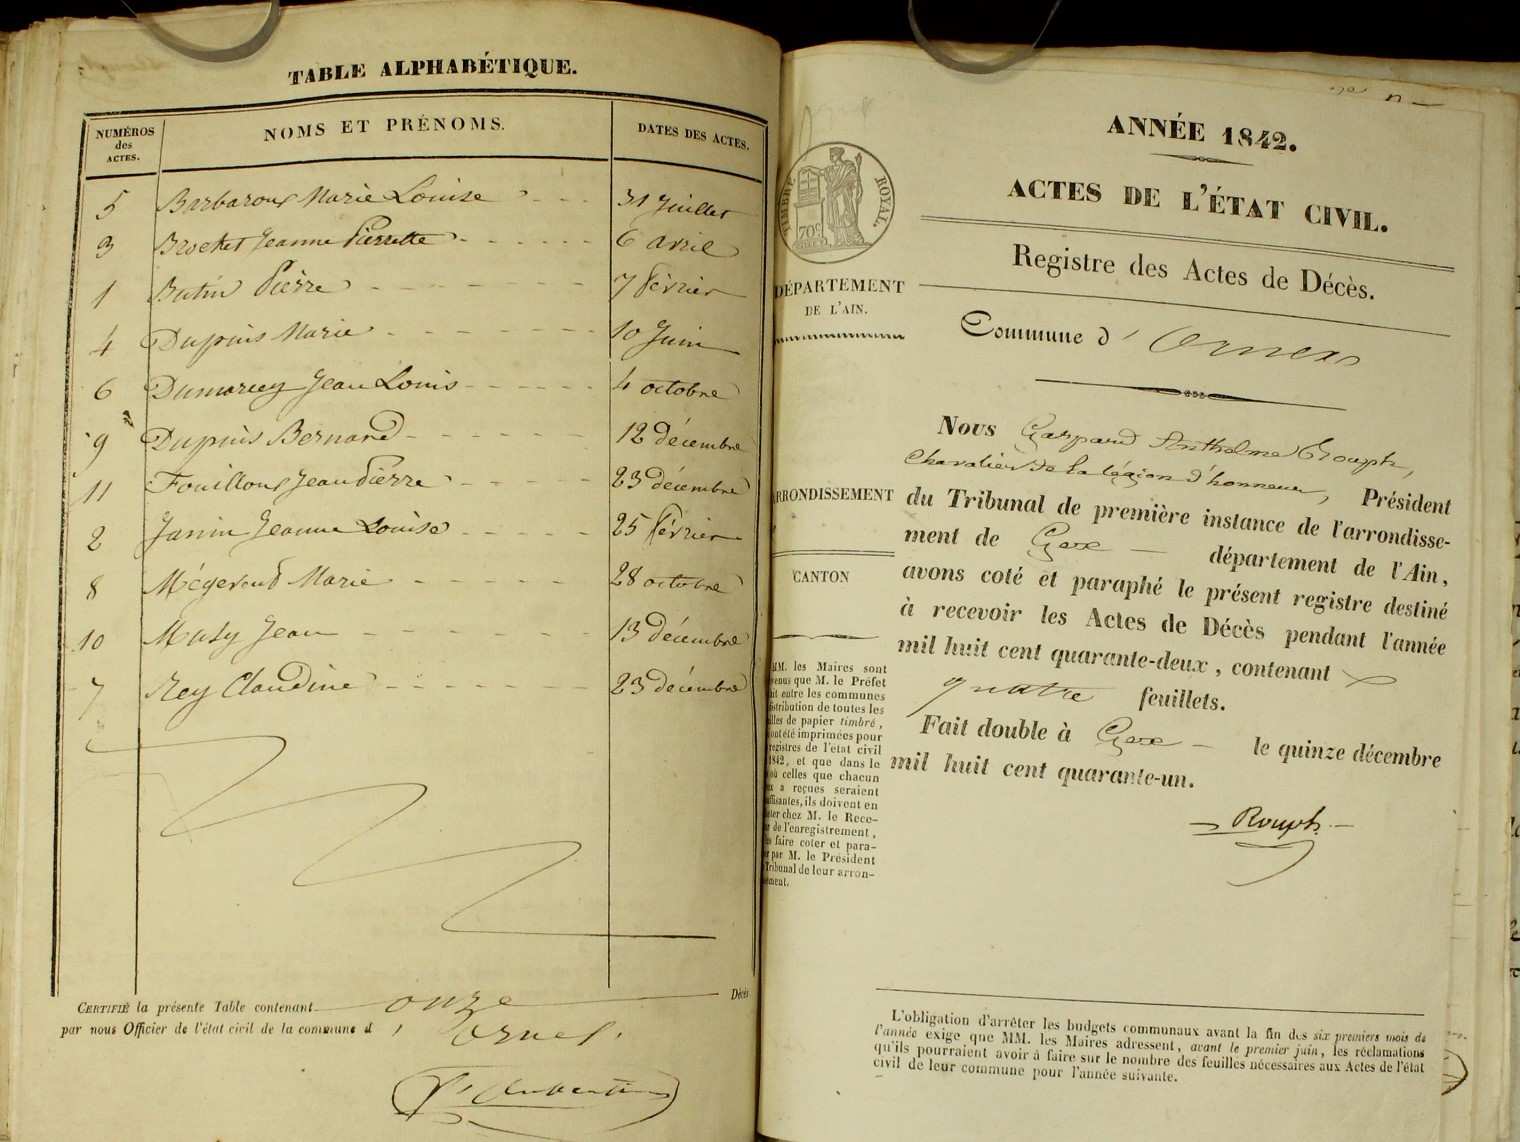 TABLE ALPHABÉTIQUE.
NUMÉROS des ACTES. NOMS ET PRÉNOMS. DATES DES ACTES.
5 Barbaroux Marie Louise 31 Juillet
3 Brochet Jeanne Pierrette 6 avril
1 Butin Pierre 7 février
4 Dupuis Marie 10 Juin
6 Dumarcey Jean Louis 4 octobre
9 Dupuis Bernard 12 décembre
11 Fouilloux Jean Pierre 23 décembre
2 Janin Jeanne Louise 25 février
8 Mégevend Marie 28 octobre
10 Masy Jean 13 décembre
7 Rey Claudine 23 décembre
CERTIFIÉ la présente Table contenant onze Décès
par nous Officier de l'état civil de la commune d'Ornex.
ANNÉE 1842.
ACTES DE L'ÉTAT CIVIL.
TIMBRE ROYAL.
70c
Registre des Actes de Décès.
DÉPARTEMENT
DE L'AIN.
Commune d'Ornex
ARRONDISSEMENT
CANTON
Nous Gaspard Anthelme Rouph,
Chevalier de la légion d'honneur, Président
du Tribunal de première instance de l'arrondisse-
ment de Gex — département de l'Ain,
avons coté et paraphé le présent registre destiné
à recevoir les Actes de Décès pendant l'année
mil huit cent quarante-deux, contenant
quatre feuillets.
Fait double à Gex — le quinze décembre
mil huit cent quarante-un.
Rouph
MM. les Maires sont
venus que M. le Préfet
ait entre les communes
distribution de toutes les
illes de papier timbré,
ont été imprimées pour
registres de l'état civil
1842, et que dans le
où celles que chacun
ux a reçues seraient
uffisantes, ils doivent en
eter chez M. le Rece-
r de l'enregistrement,
es faire coter et para-
er par M. le Président
Tribunal de leur arron-
sement.
L'obligation d'arrêter les budgets communaux avant la fin des six premiers mois de
l'année exige que MM. les Maires adressent, avant le premier juin, les réclamations
qu'ils pourraient avoir à faire sur le nombre des feuilles nécessaires aux Actes de l'état
civil de leur commune pour l'année suivante.